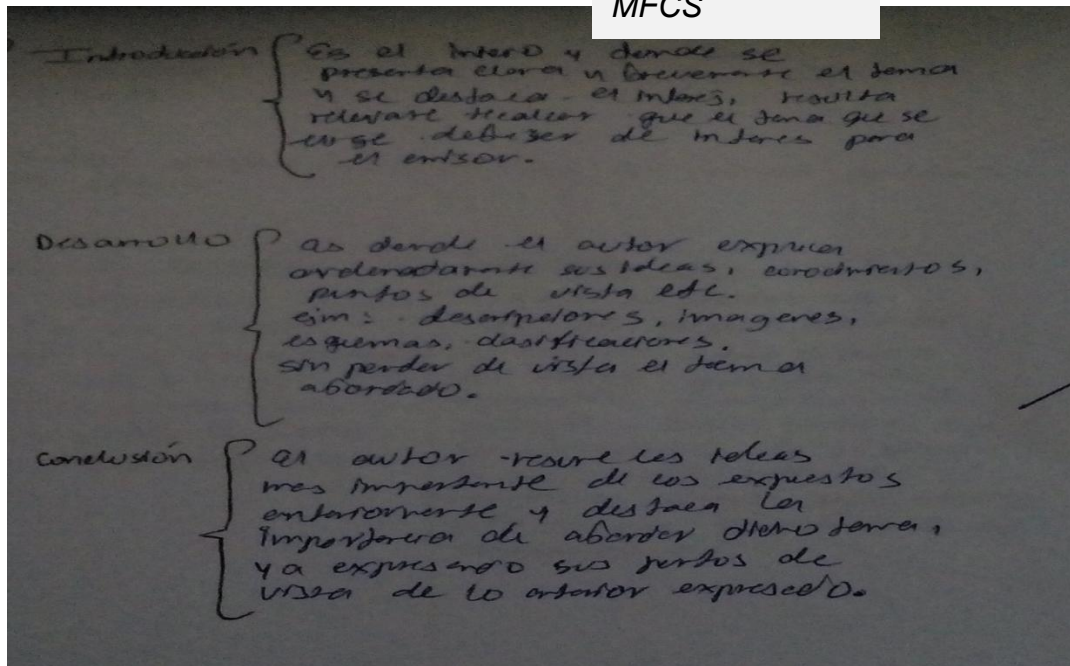 MFCS
Introducción
Es el inicio y donde se
presenta clara y brevemente el tema
y se destaca el interés, resulta
relevante recalcar que el tema que se
elige debe ser de interes para
el emisor.
Desarrollo
es donde el autor explica
ordenadamente sus ideas, conocimientos,
puntos de vista etc.
ejm: descripciones, imagenes,
esquemas, clasificaciones.
sin perder de vista el tema
abordado.
Conclusión
el autor reune las ideas
mas importante de los expuestos
anteriormente y destaca la
importancia de abordar dicho tema,
ya expresando sus puntos de
vista de lo anterior expresado.